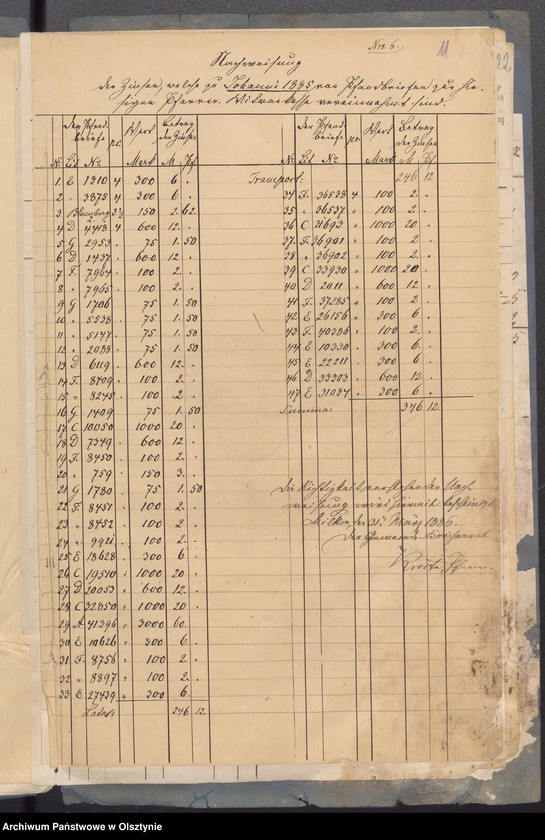 Nro. 6.
11
22
Nachweisung
der Zinsen, welche zu Johanni 1885 von Pfandbriefen zur hie-
sigen Pfarrer-Witwenkasse vereinnahmt sind.
der Pfand- Wert Betrag
briefe pC. der Zinsen
No Lit No Mark M. Pf.
1 E 1310 4 300 6 .
2 . 3875 4 300 6 .
3 Blumberg 3½ 150 2. 62.
4 D 4418 4 600 12. .
5 G 2953 . 75 1. 50
6 D 1437 . 600 12. .
7 F. 7964 . 100 2. .
8 " 7965 . 100 2. .
9 G 1706 75 1. 50
10 " 5538 . 75 1. 50
11 " 5147 . 75 1. 50
12 " 2088 . 75 1. 50
13 D 6119 . 600 12. .
14 F. 8409 . 100 2. .
15 " 8245 . 100 2. .
16 G 1409 75 1. 50
17 C 10050 1000 20 .
18 D 7349 . 600 12 .
19 F. 8450 . 100 2. .
20 " 759 . 150 3. .
21 G 1780 . 75 1. 50
22 F. 8451 " 100 2. .
23 " 8452 " 100 2. .
24 " 9921 " 100 2. .
25 E 18628 300 6 .
26 C 19510 " 1000 20 .
27 D 20053 " 600 12. .
28 C 32850 " 1000 20 .
29 A 41396 " 3000 60. .
30 E 10626 " 300 6 .
31 F. 8756 " 100 2 .
32 " 8897 " 100 2. .
33 E 27439 " 300 6 .
Latus: 246 12
der Pfand- Wert Betrag
briefe pC. der Zinsen
No Lit No Mark M. Pf.
Transport: 246 12
34 F. 36538 4 100 2. .
35 " 36537 " 100 2. .
36 C 31693 " 1000 20 .
37. F. 36901 " 100 2. .
38 " 36902 " 100 2. .
39 C 33930 " 1000 20 .
40 D 2011 " 600 12 .
41 F. 37285 " 100 2 .
42 E 26156 " 300 6 .
43 F. 40386 " 100 2. .
44 E 10330 " 300 6. .
45 E 22211 " 300 6 .
46 D 33303 " 600 12 .
47 E 31034 " 300 6 .
Summa: 346 12
Die Richtigkeit vorstehender Nach-
weisung wird hiermit bescheinigt.
Milken, den 31. März 1886.
Der Gemeinde-Kirchenrat
Pfarrer.
Archiwum Państwowe w Olsztynie